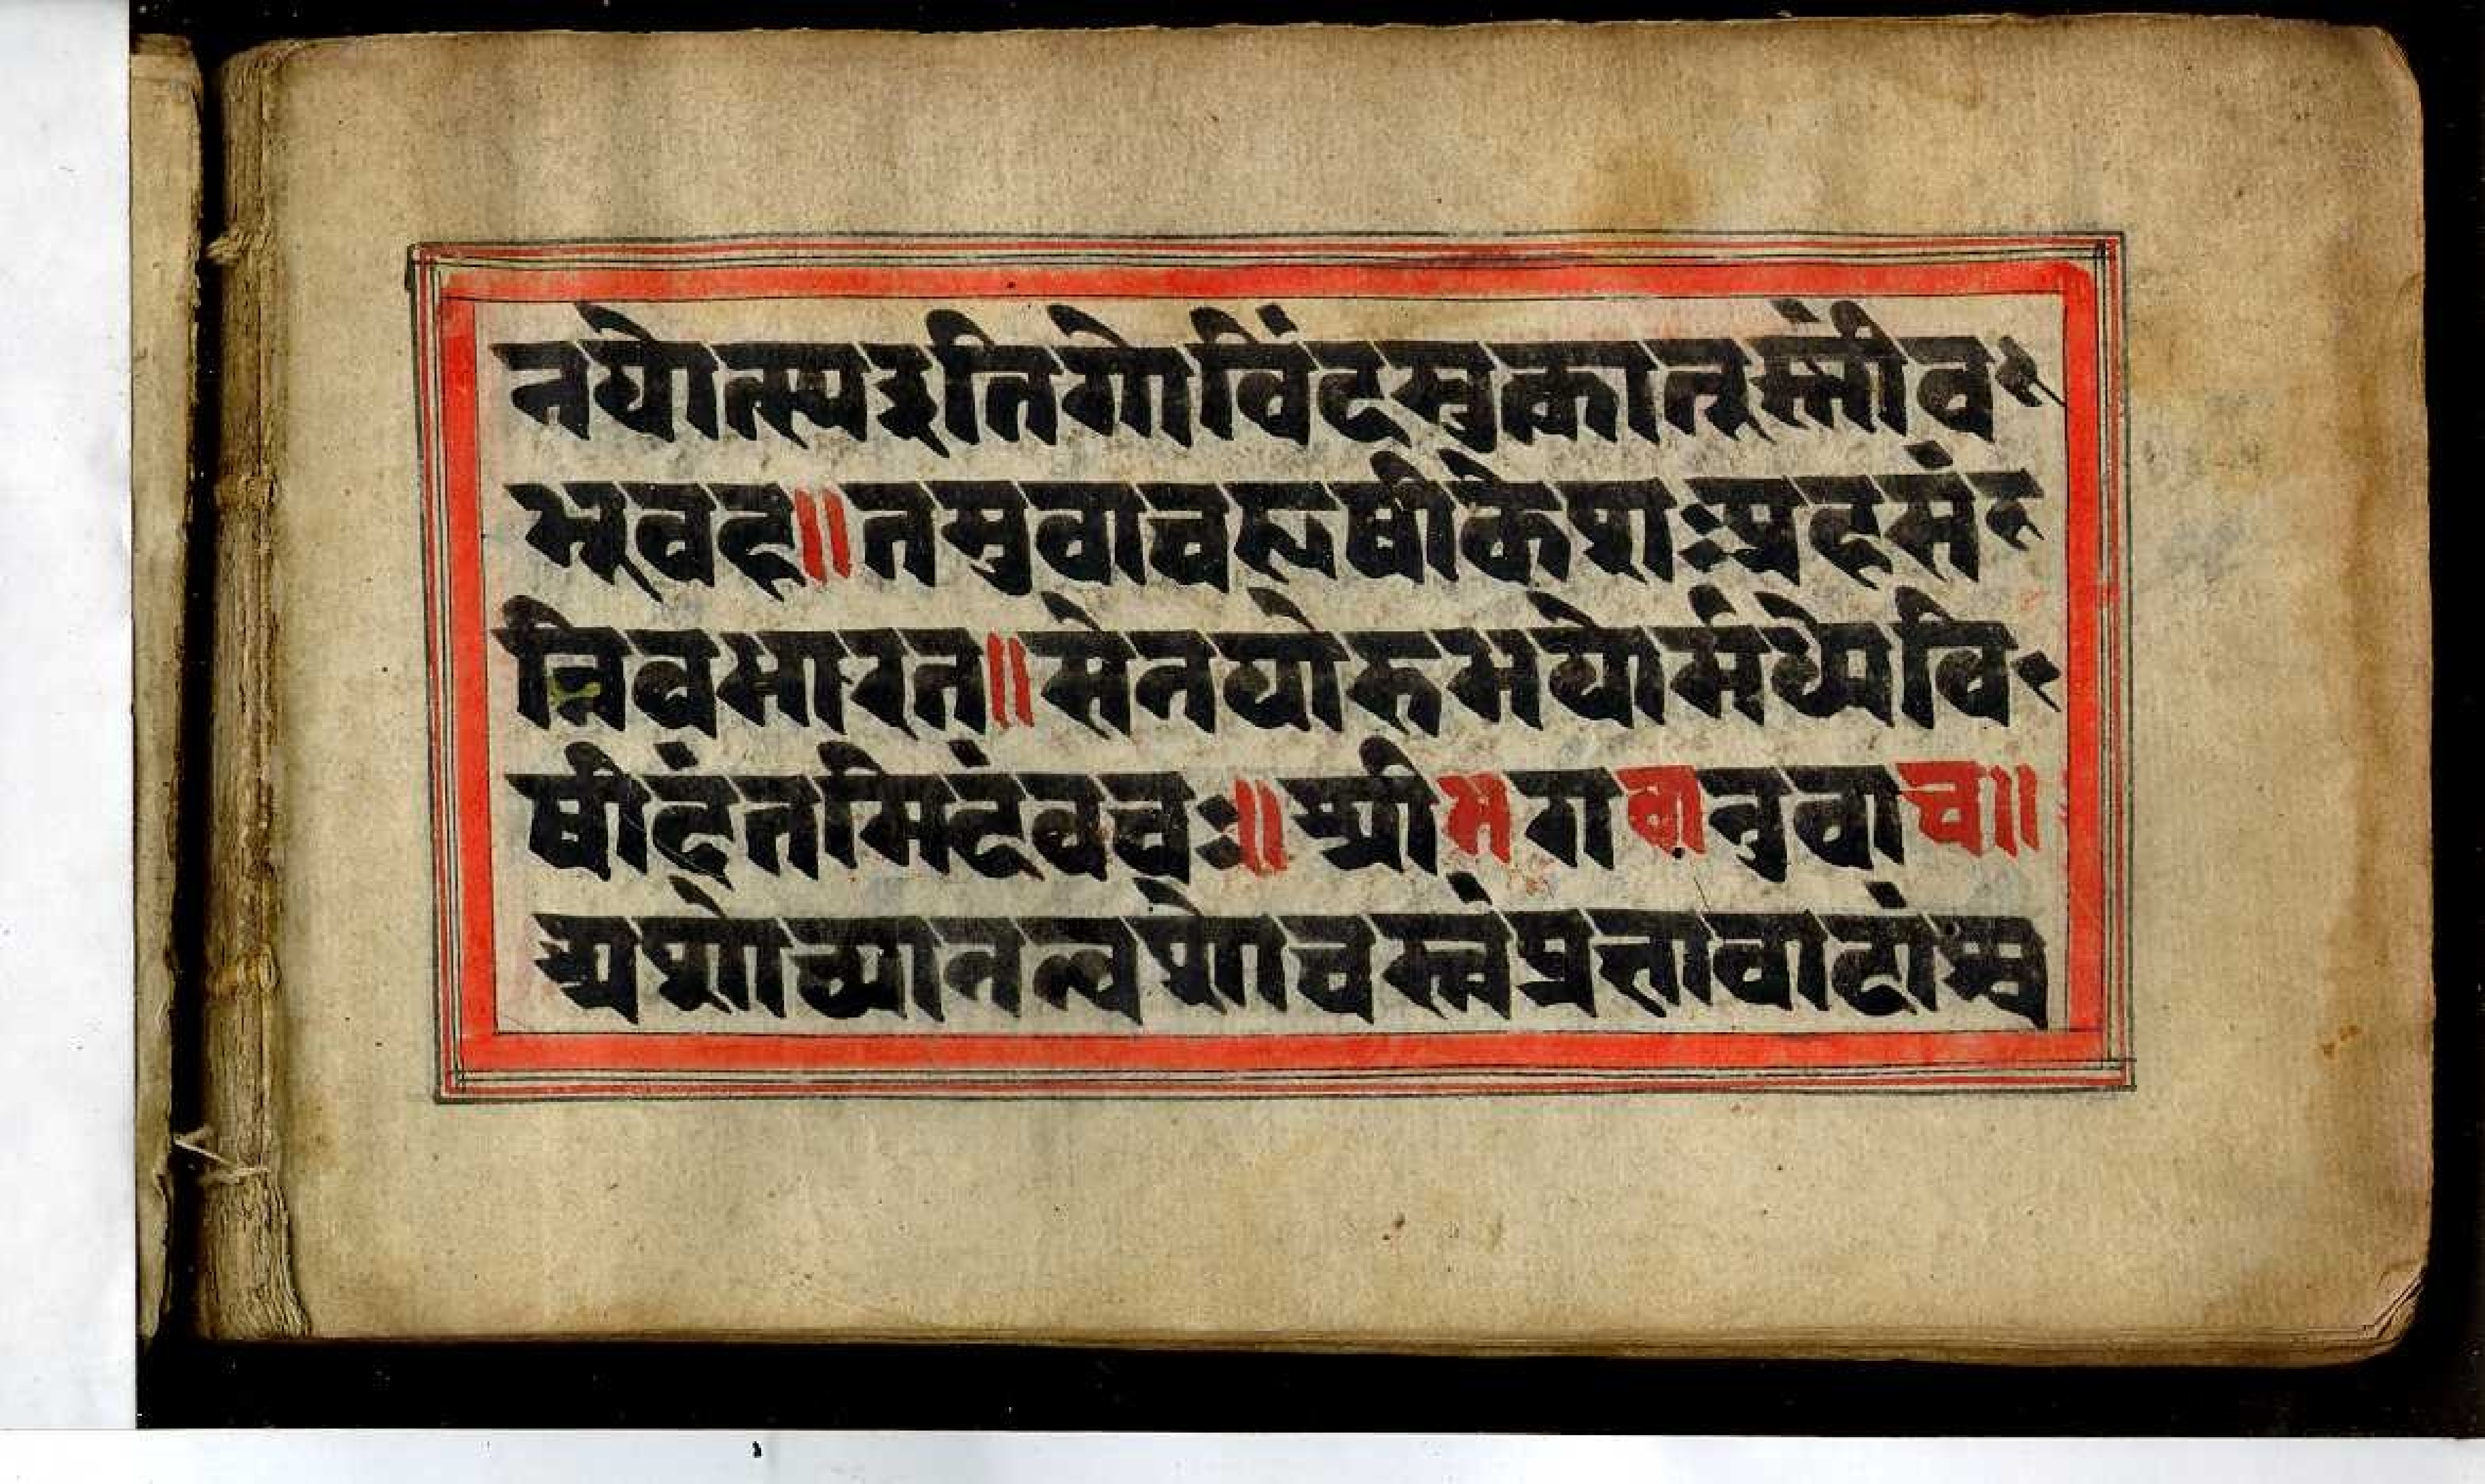 नयोत्स्यइतिगोविंदमुक्कातूस्मींव
भूवह॥तमुवाचहृषीकेशःप्रहसंन
निवभारत॥सेनयोरुभयोर्मध्येवि
षीदंतमिदंवचः॥श्रीभगवानुवाच॥
अशोच्यानन्वशोचस्त्वंप्रज्ञावादांश्च